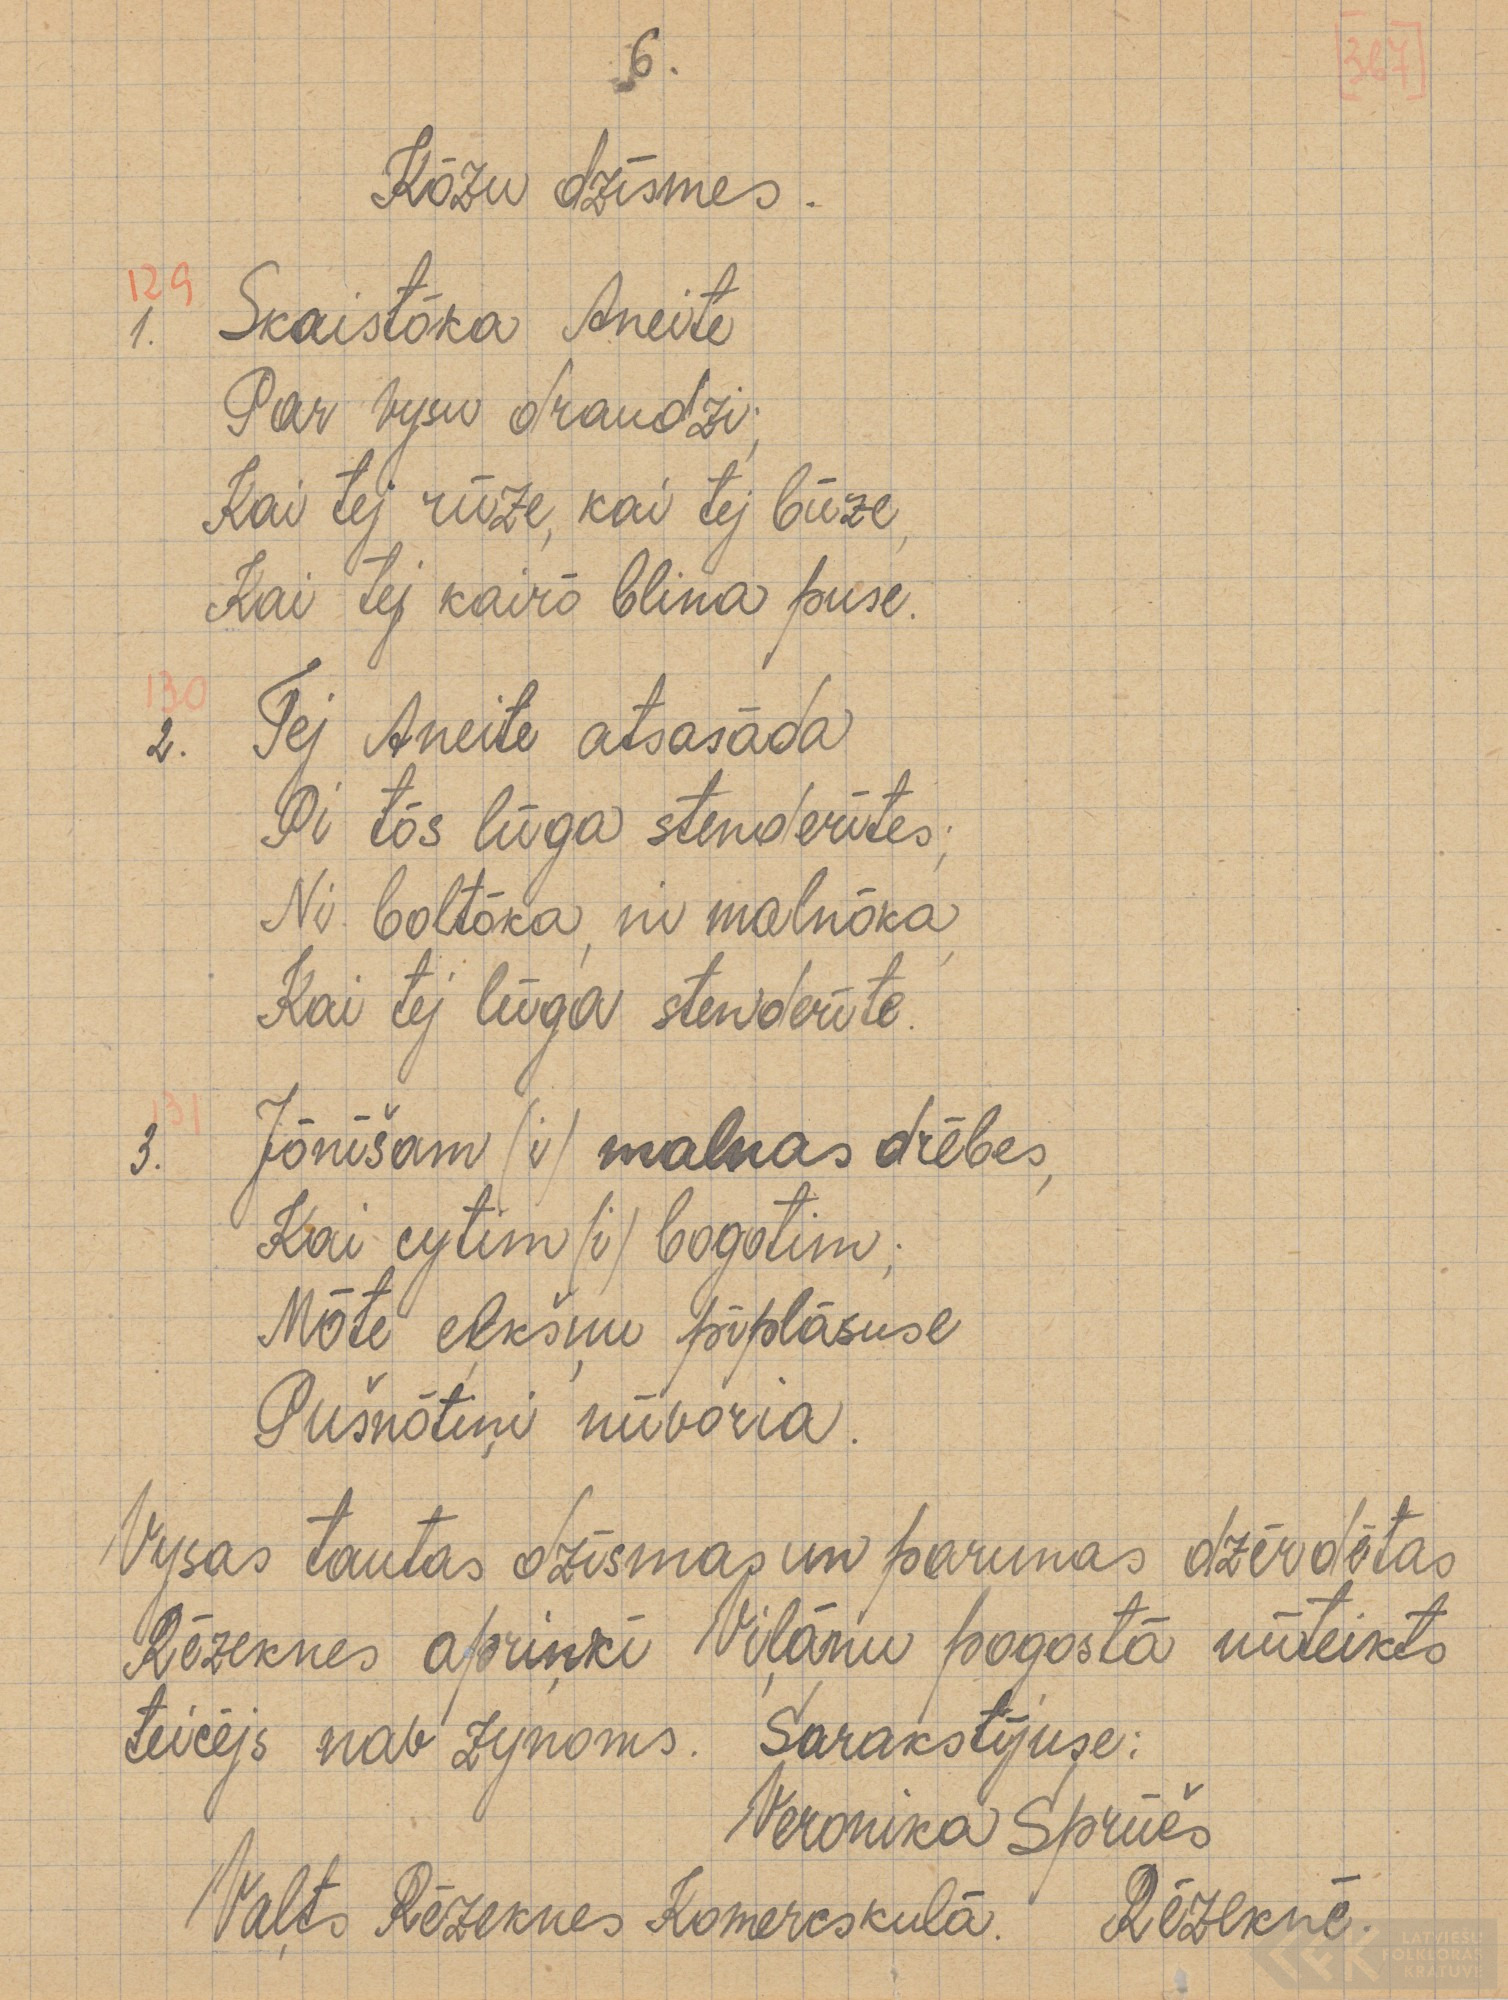 6.
[367]
Kōzu dzīsmes.
129
1. Skaistōka Aneite
Par vysu draudzi;
Kai tej rūze, kai tej būze,
Kai tej kairō blina puse.
130
2. Tej Aneite atsasāda
Pi tōs lūga stenderītes;
Ni boltōka, ni malnōka,
Kai tej lūga stenderīte.
131
3. Jōnīšam /i/ malnas drēbes,
Kai cytim /i/ bogotim;
Mōte eļkšņu pīplāsuse
Pušnōtiņi nūvoria.
Vysas tautas dzīsmas un parunas dzērdētas
Rēzeknes apriņķī Viļānu pogostā nūteikts
teicējs nav zynoms. Sarakstījuse:
Veronika Sprūčs
Vaļts Rēzeknes Komercskulā. Rēzeknē.
LATVIEŠU
FOLKLORAS
KRĀTUVE